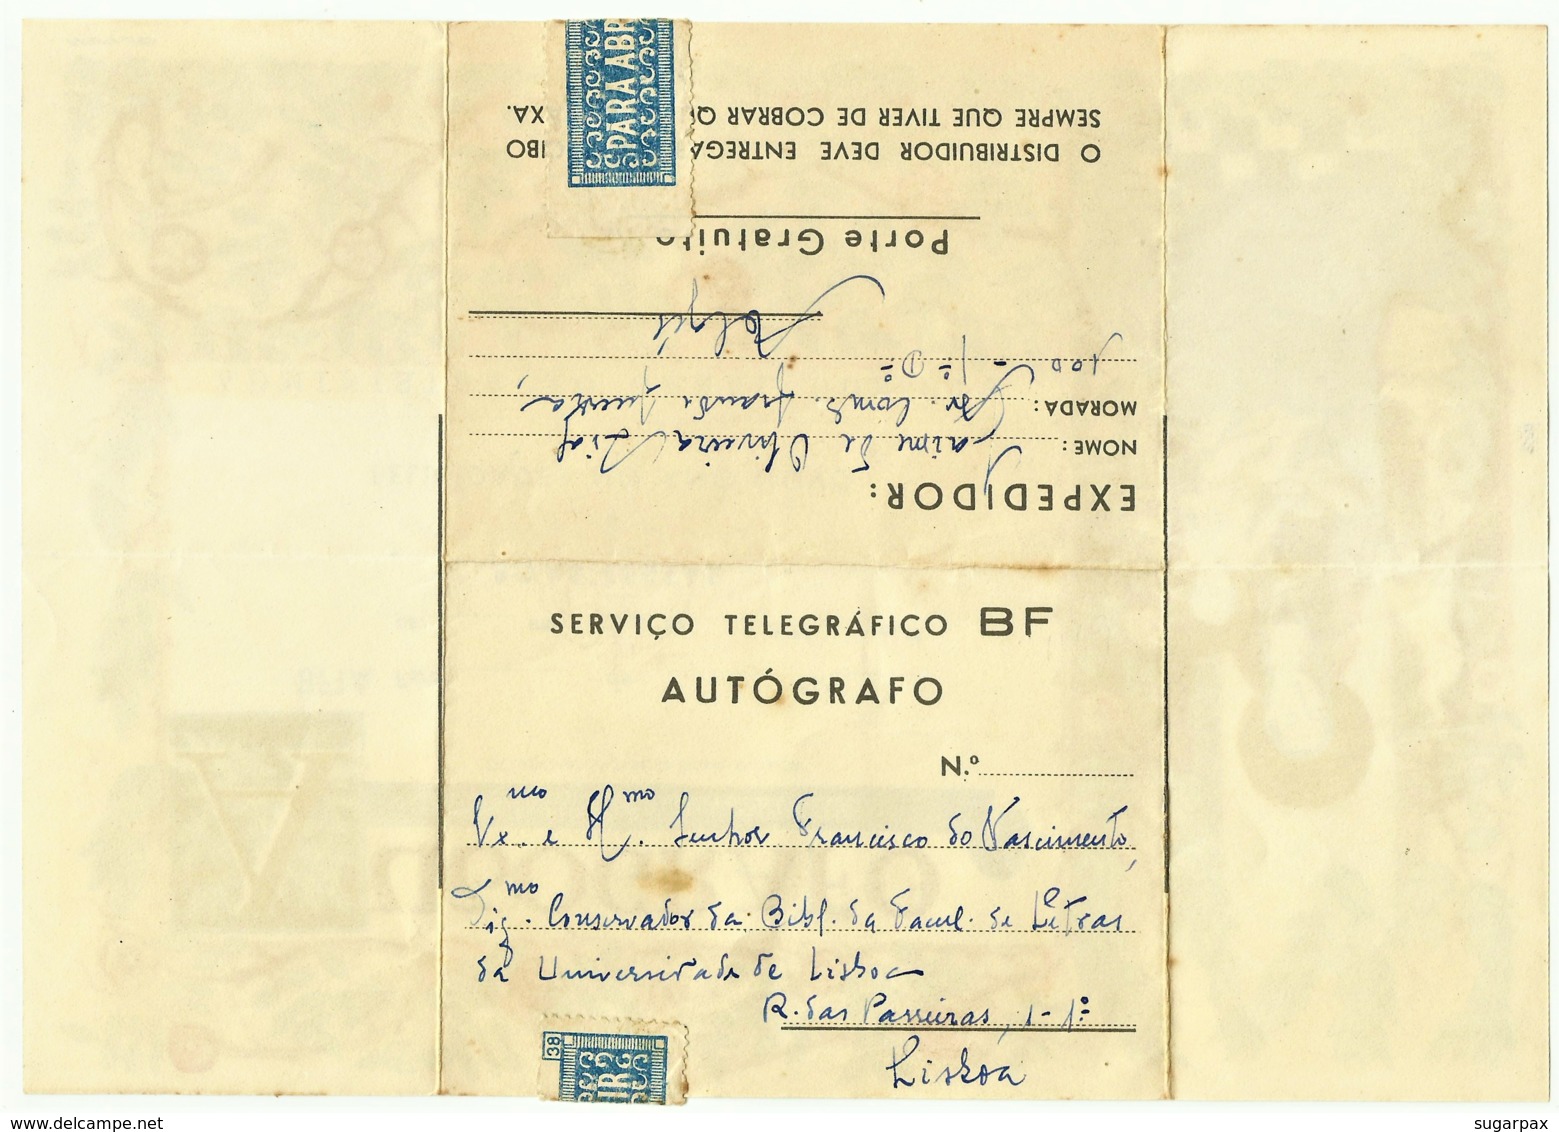 PARA ABR
O DISTRIBUIDOR DEVE ENTREGA IBO
SEMPRE QUE TIVER DE COBRAR Q XA.
Porte Gratuito
EXPEDIDOR:
NOME: Jaime de Oliveira Dias
MORADA: Av. Comb. Grande Guerra,
100 - 1º Dº
Algés
SERVIÇO TELEGRÁFICO BF
AUTÓGRAFO
N.º
Exmo. e Ilmo. Senhor Francisco do Nascimento,
Digmo. Conservador da Bibl. da Facul. de Letras
da Universidade de Lisboa
R. das Parreiras, 1-1º
Lisboa
38
IR
www.delcampe.net
sugarpax